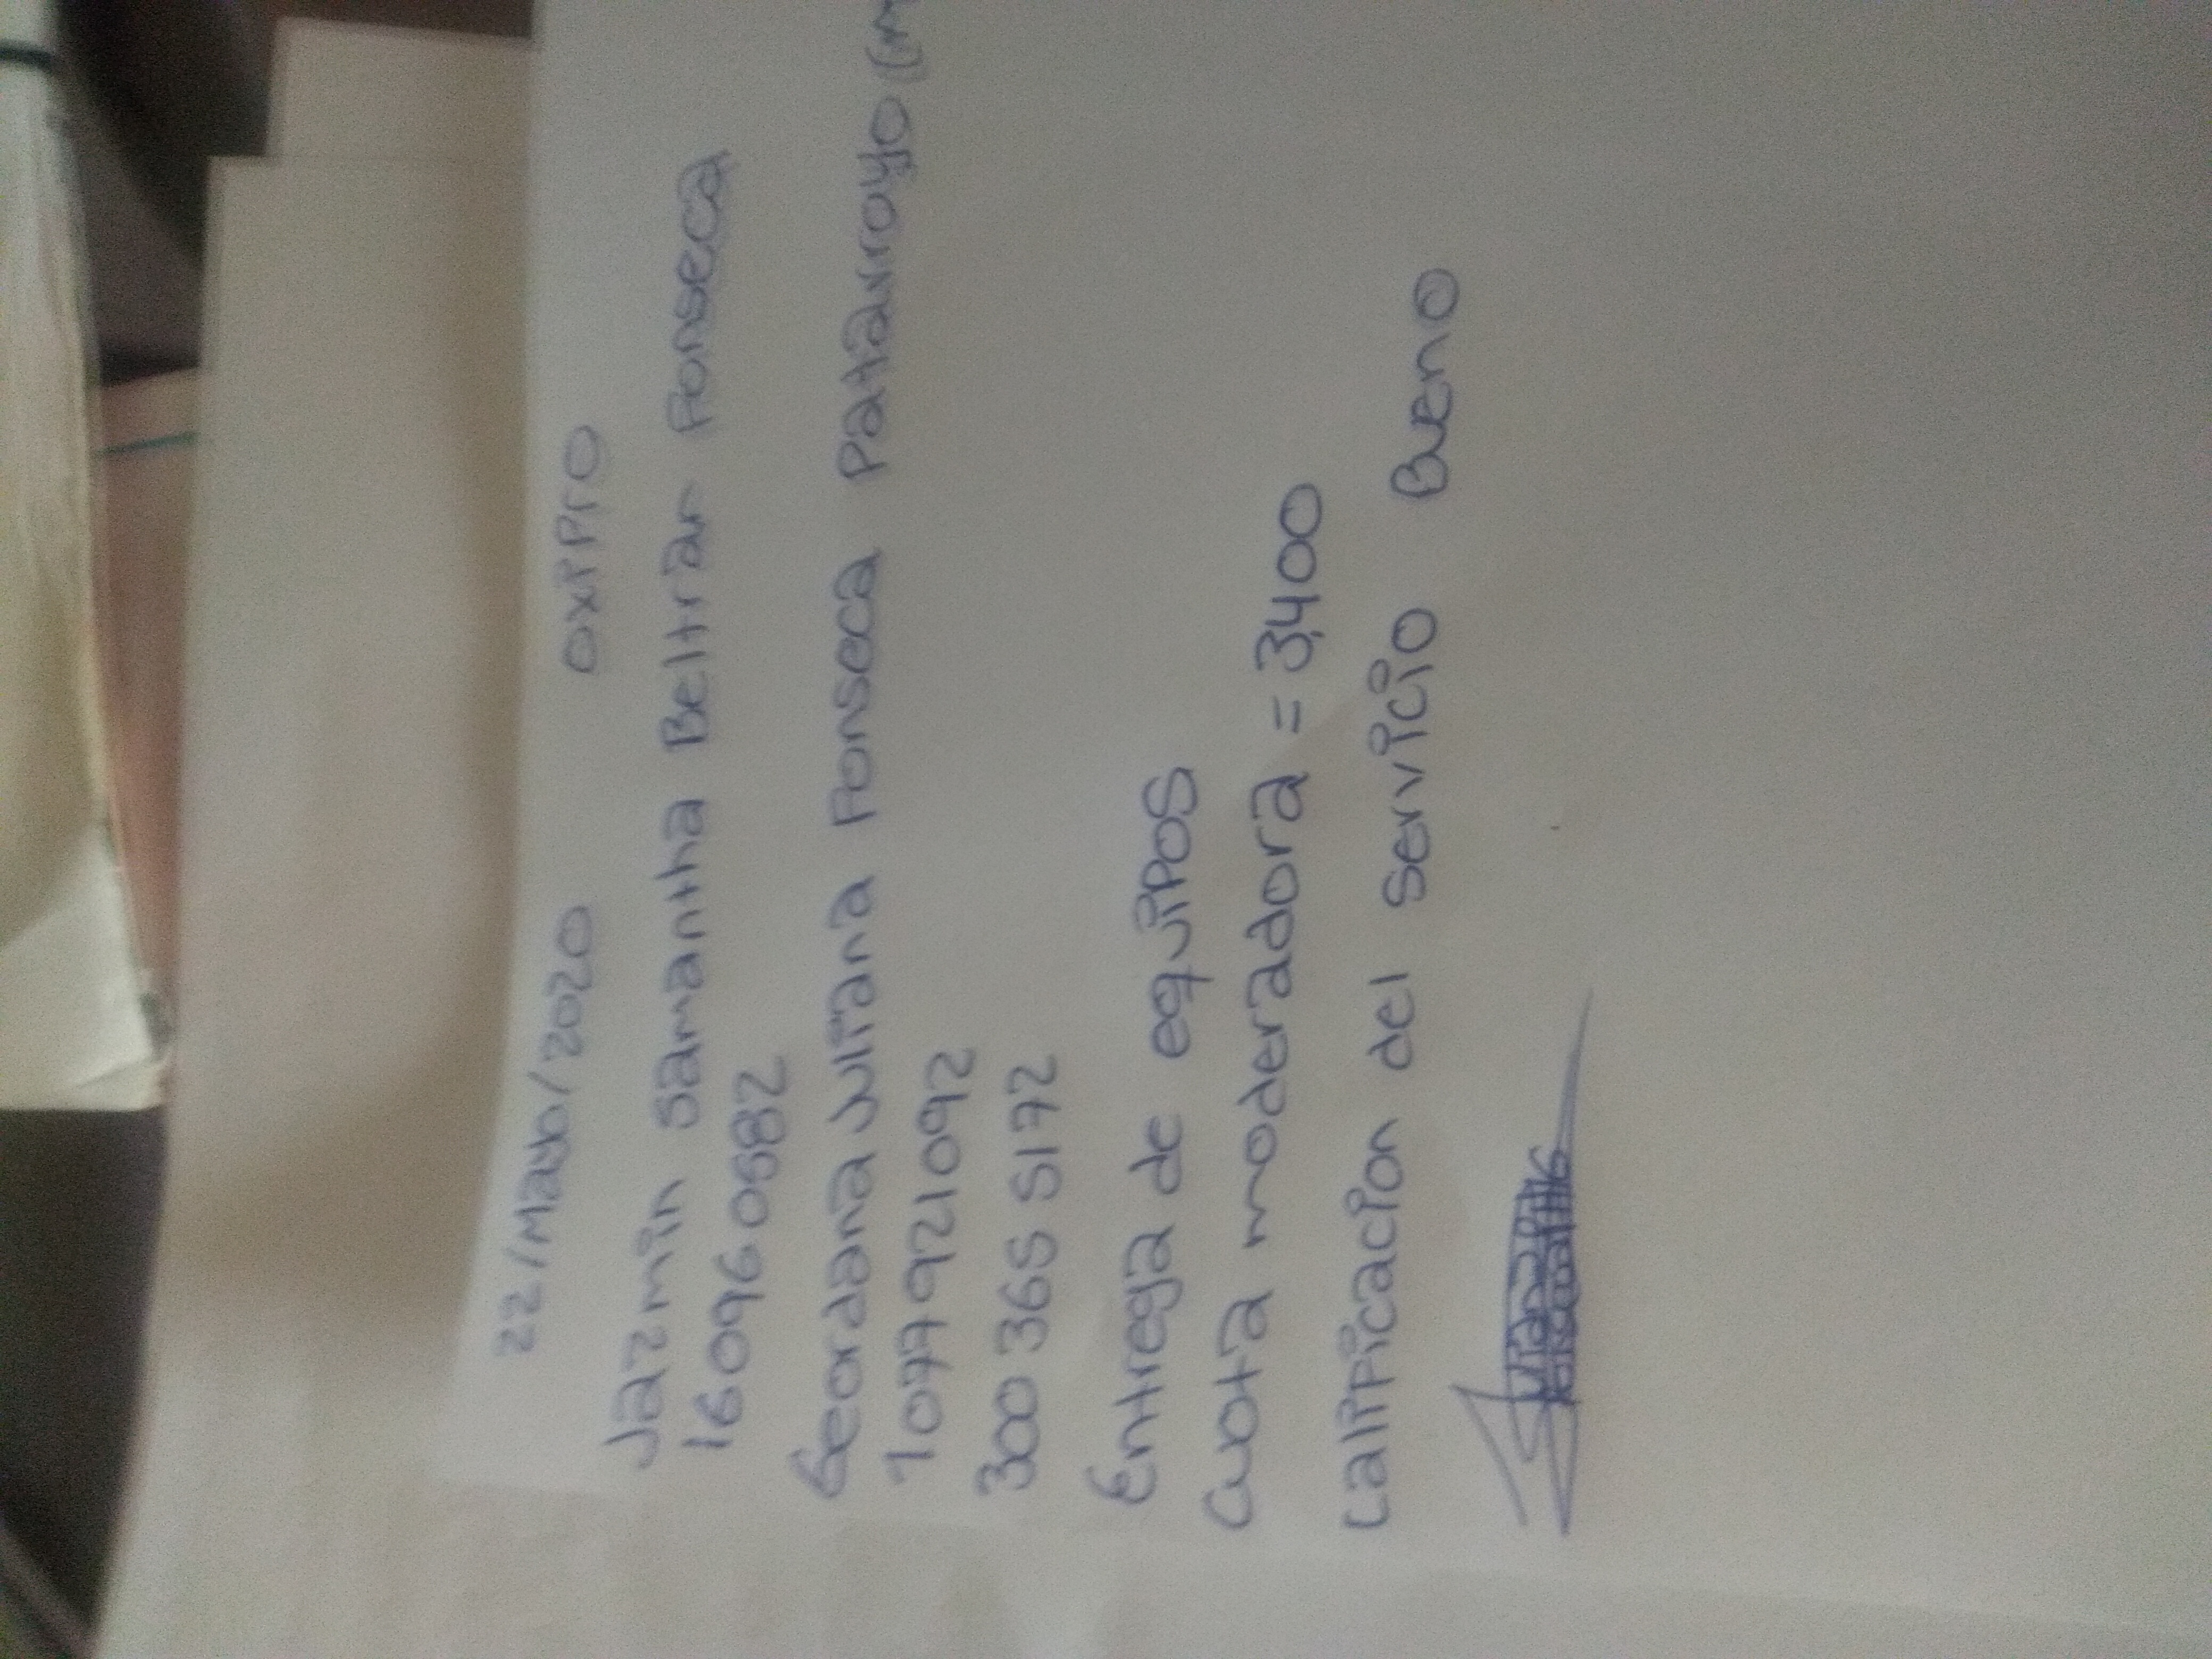 22/Mayo/2020 OXIPRO
Jazmin Samantha Beltran Fonseca
160960582
Geordana Juliana Fonseca Patarroyo (m
1077921092
300 365 5172
Entrega de equipos
Cuota moderadora = 3,400
Calificacion del servicio Bueno